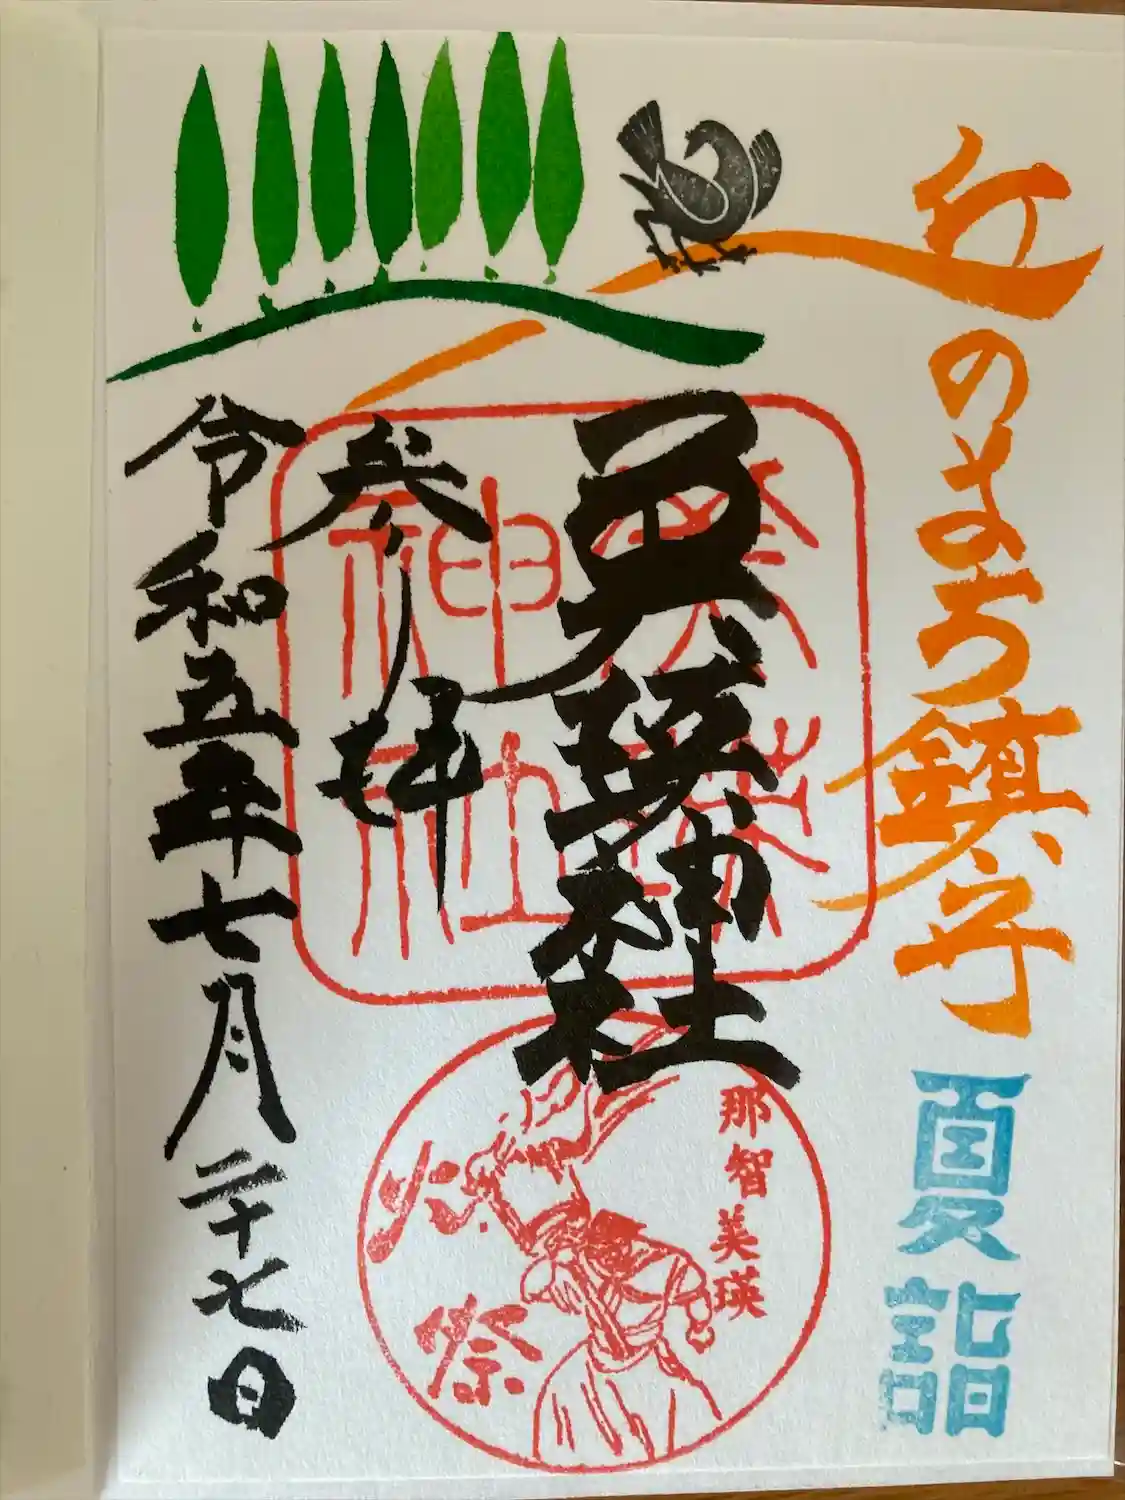 丘のまち鎮守
夏詣
美瑛神社
美瑛神社
参拝
令和五年七月二十七日
那智美瑛
火祭